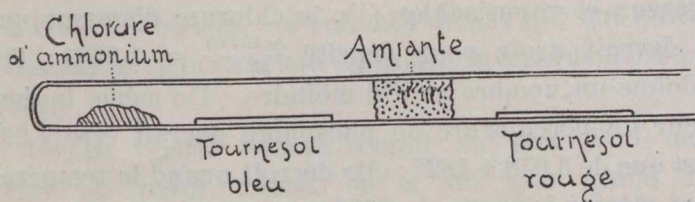 Chlorure
d'ammonium
Amiante
Tournesol
bleu
Tournesol
rouge